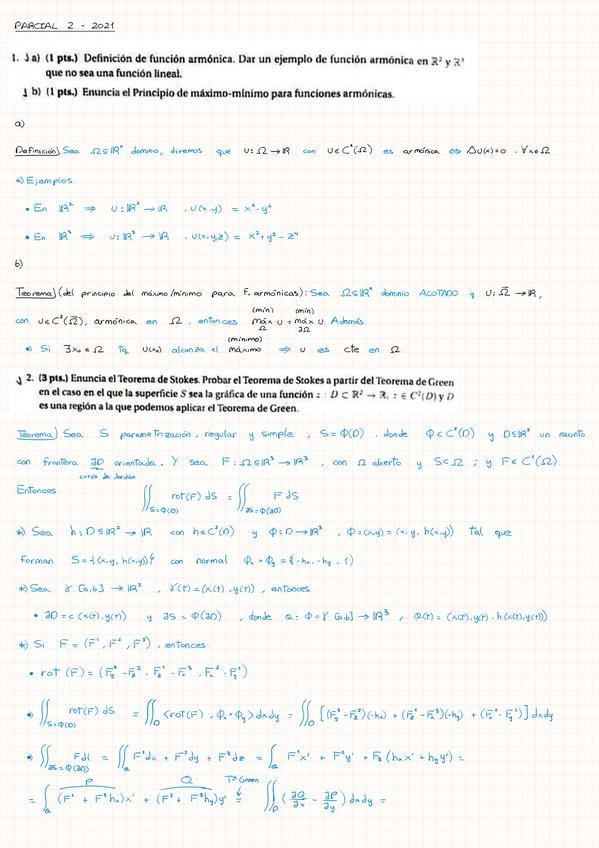 PARCIAL 2 - 2021
1. a) (1 pts.) Definición de función armónica. Dar un ejemplo de función armónica en ℝ² y ℝ³
que no sea una función lineal.
b) (1 pts.) Enuncia el Principio de máximo-mínimo para funciones armónicas.
a)
Definición) Sea Ω⊆ℝⁿ dominio, diremos que u:Ω→ℝ con u∈C²(Ω) es armónica ⇔ Δu(x)=0 . ∀x∈Ω
*) Ejemplos:
• En ℝ² ⇒ u:ℝ²→ℝ . u(x,y) = x²-y²
• En ℝ³ ⇒ u:ℝ³→ℝ . u(x,y,z) = x²+y²-z⁴
b)
Teorema) (del principio del máximo/mínimo para F. armónicas): Sea Ω⊆ℝⁿ dominio ACOTADO y u: Ω̄→ℝ,
(mín) (mín)
con u∈C²(Ω̄), armónica en Ω . entonces máx u = máx u. Además.
Ω̄ ∂Ω
(mínimo)
•) Si ∃x₀∈Ω tq u(x₀) alcanza el máximo ⇒ u es cte en Ω.
2. (3 pts.) Enuncia el Teorema de Stokes. Probar el Teorema de Stokes a partir del Teorema de Green
en el caso en el que la superficie S sea la gráfica de una función z : D ⊂ ℝ² → ℝ, z ∈ C²(D) y D
es una región a la que podemos aplicar el Teorema de Green.
Teorema) Sea S parametrización, regular y simple , S=Φ(D) . donde Φ∈C²(D) y D⊆ℝ² un recinto
con frontera ∂D orientada. Y sea F:Ω⊆ℝ³→ℝ³ , con Ω abierto y S⊂Ω ; y F∈C¹(Ω)
curva de Jordan
Entonces: ∬ rot(F) dS = ∬ F dS
S=Φ(D) ∂S=Φ(∂D)
*) Sea h:D⊆ℝ²→ℝ con h∈C²(D) y Φ:D→ℝ³ , Φ=(x,y)=(x,y,h(x,y)) tal que
forman S={(x,y,h(x,y))} con normal Φₓ×Φᵧ={-hₓ,-hᵧ,1)
*) Sea γ [a,b]→ℝ² , γ(t)=(x(t),y(t)) , entonces
• ∂D=c(x(t),y(t)) y ∂S=Φ(∂D) , donde α:Φ∘γ [a,b]→ℝ³ , α(t)=(x(t),y(t),h(x(t),y(t)))
*) Si F=(F¹,F²,F³) . entonces:
• rot (F)=(F³ᵧ-F²_z , F¹_z-F³ₓ , F²ₓ-F¹ᵧ)
•) ∬ rot(F) dS = ∬_D <rot(F) , Φₓ×Φᵧ>dxdy = ∬_D [(F³ᵧ-F²_z)(-hₓ) + (F¹_z-F³ₓ)(-hᵧ) + (F²ₓ-F¹ᵧ)] dxdy
S=Φ(D)
•) ∬ Fdl = ∬_α F¹dx + F²dy + F³dz = ∫_α F¹x' + F²y' + F₃(hₓx' + hᵧy') =
∂S=Φ(∂D)
P Q Tª Green
= ∫_α (F¹ + F³hₓ)x' + (F² + F³hᵧ)y' = ∬_D (∂Q/∂x - ∂P/∂y) dxdy =